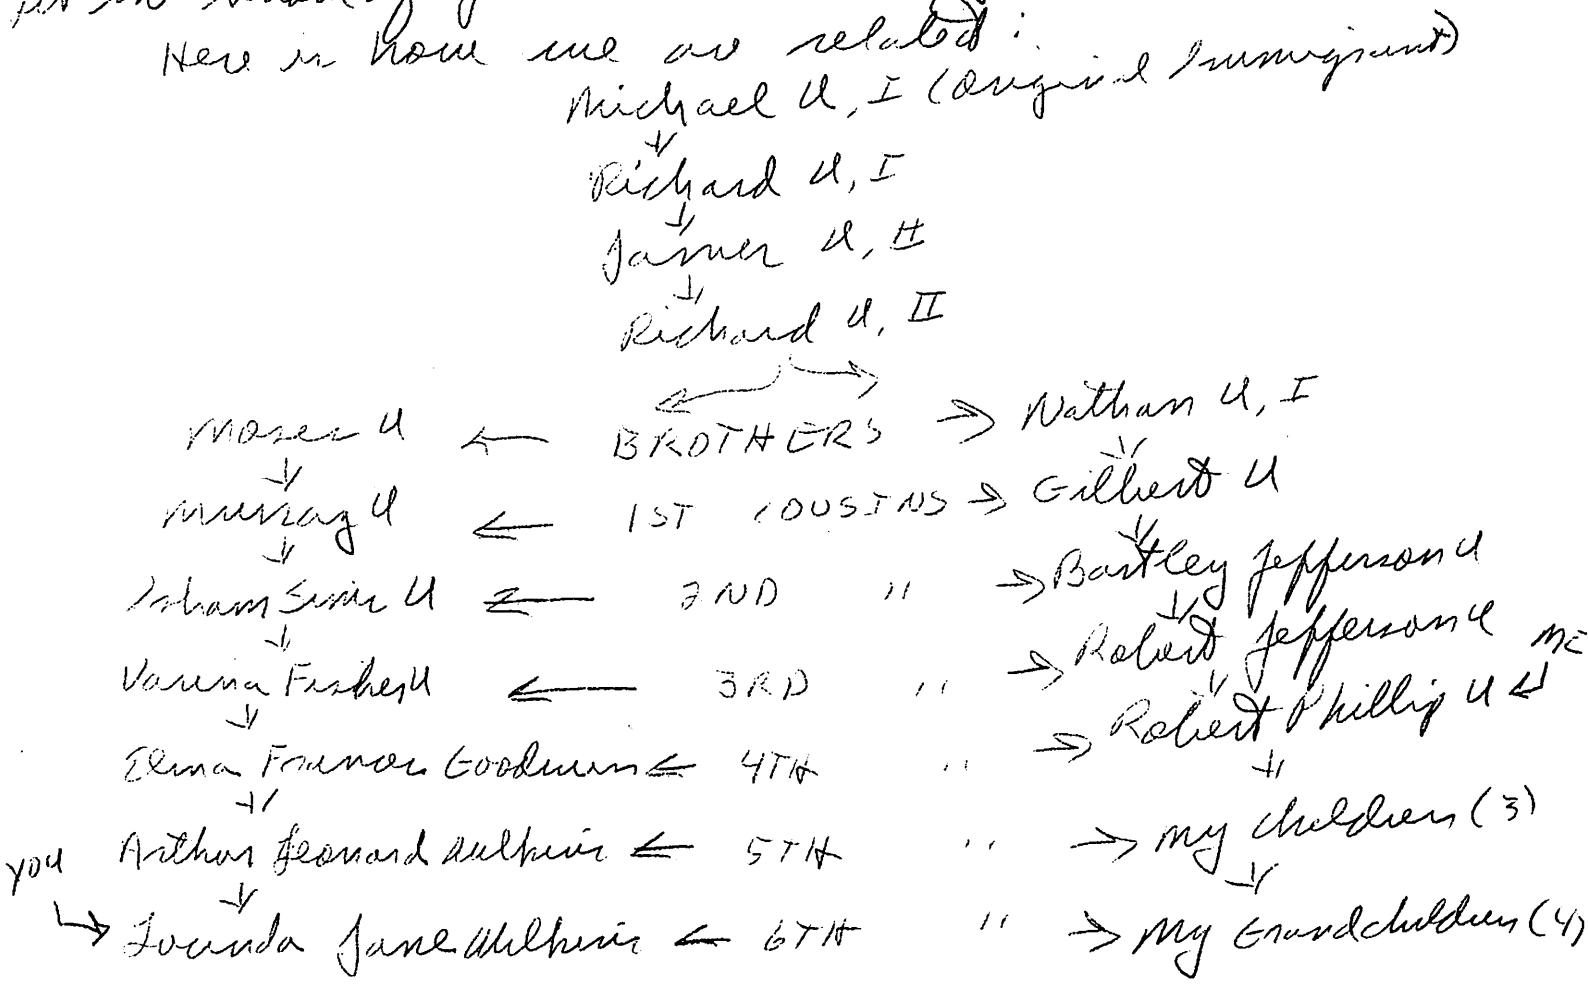 Here is how we are related:
Michael U, I (Original Immigrant)
Richard U, I
James U, II
Richard U, II
Moses U ← BROTHERS → Nathan U, I
Murray U ← 1ST COUSINS → Gilbert U
Isham Sims U ← 2ND " → Bartley Jefferson U
Varina Fisher U ← 3RD " → Robert Jefferson U
ME
Elma Frances Goodwin ← 4TH " → Robert Phillip U
Arthur Leonard Wilkins ← 5TH " → My children (3)
YOU
Lucinda Jane Wilkins ← 6TH " → My Grandchildren (4)